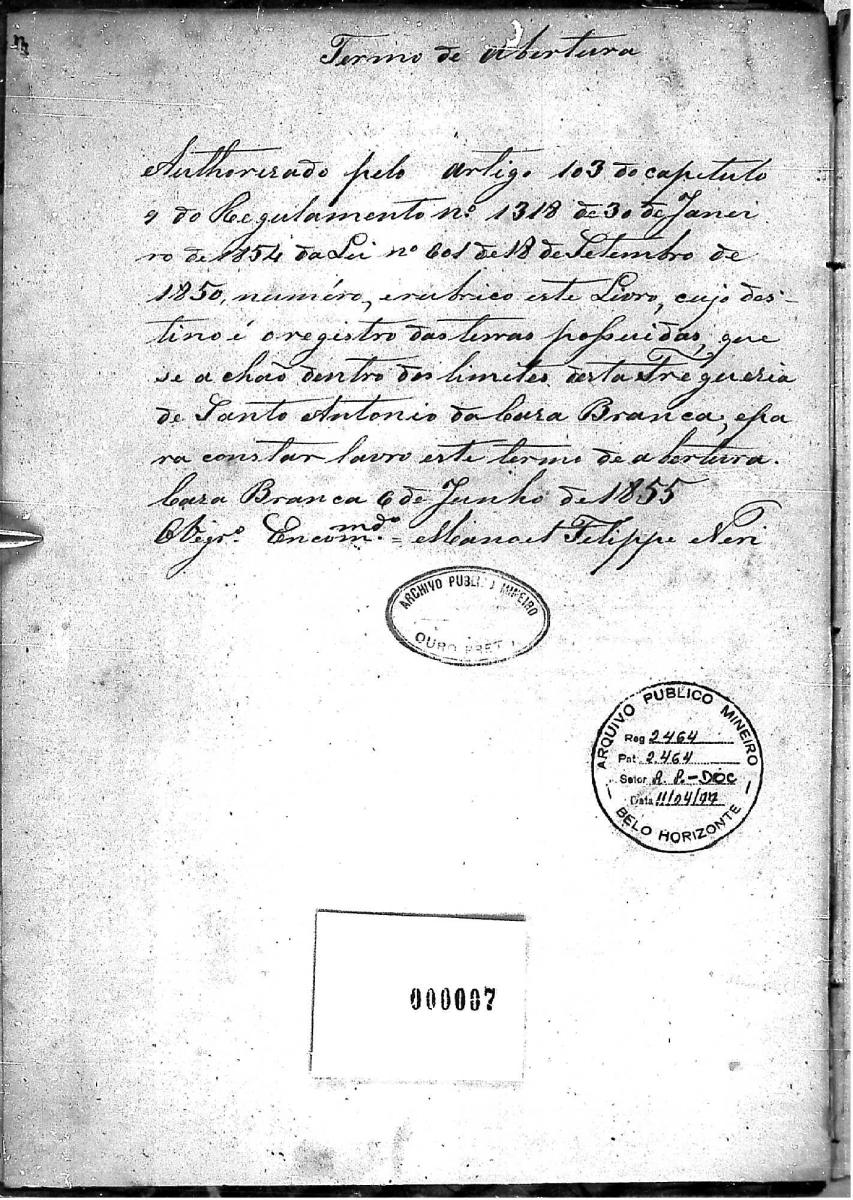 Termo de abertura
Authorisado pelo artigo 103 do capitulo
9 do Regulamento nº 1318 de 30 de Janei
ro de 1854 da Lei nº 601 de 18 de Setembro de
1850, numéro, e rubrico este Livro, cujo des-
tino é o registro das terras possuidas, que
se a chão dentro dos limites desta Fregueria
de Santo Antonio da Casa Branca, e pa
ra constar lavro este termo de abertura.
Casa Branca 6 de Junho de 1855
O Vigrº Encommdº = Manoel Filippe Neri
ARCHIVO PUBLICO MINEIRO
OURO PRETO
ARQUIVO PUBLICO MINEIRO
Reg 2464
Pat 2.464
Setor P. P. - DOC
Data 11/04/77
BELO HORIZONTE
000007